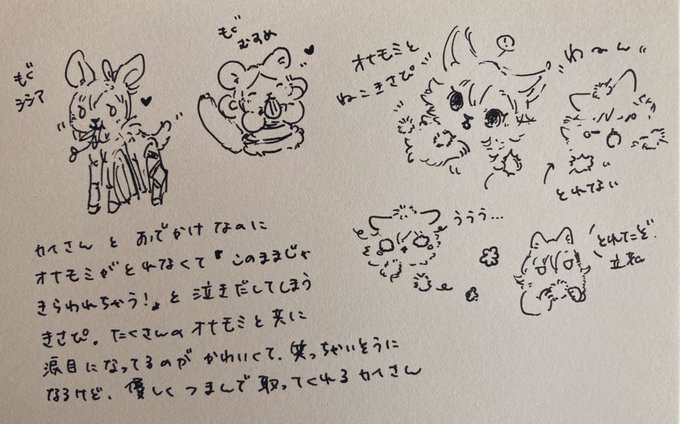 もぐ
シシア
もぐ
むすめ
オナモミと
ねこきさぴ
!
"わーん"
とれてない
ううう…
とれたぞ
カイさんと おでかけなのに
オナモミがとれなくて『このままじゃ
きらわれちゃう!』と泣きだしてしまう
きさぴ。たくさんのオナモミと共に
涙目になってるのがかわいくて、笑っちゃいそうに
なるけど、優しくつまんで取ってくれるカイさん